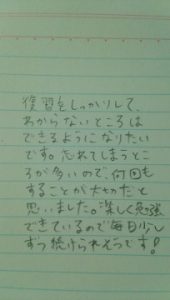 復習をしっかりして、
わからないところは
できるようになりたい
です。忘れてしまうとこ
ろが多いので、何回も
することが大切だと
思いました。楽しく勉強
できているので毎日少し
ずつ続けられそうです!